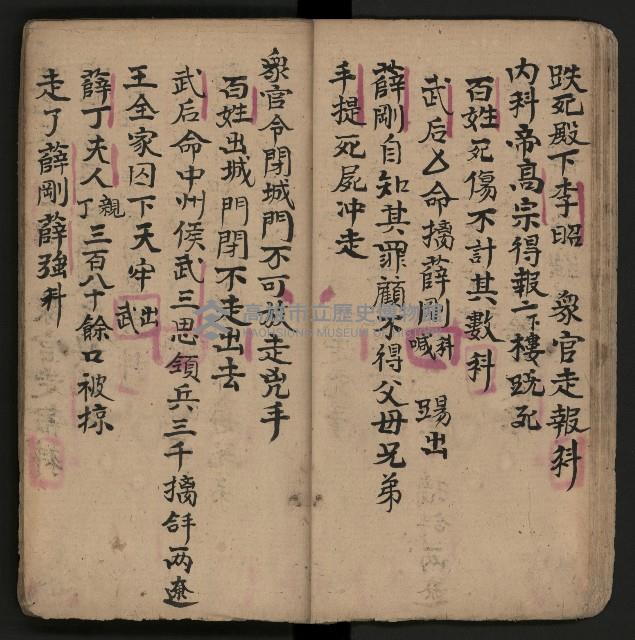 跌死殿下李昭　衆官走報科
内科帝高宗得報一下樓跌死
百姓死傷不計其數科
武后又命擒薛剛科喊　殤出
薛剛自知其罪顧不得父母兄弟
手提死屍冲走
衆官令閉城門不可放走兇手
百姓出城門閉不走出去
武后命中州侯武三思領兵三千擒
王全家囚下天牢　武出
薛丁夫人丁親三百八十餘口被掠
走了薛剛薛強科
高雄市立歷史博物館
KAOHSIUNG MUSEUM